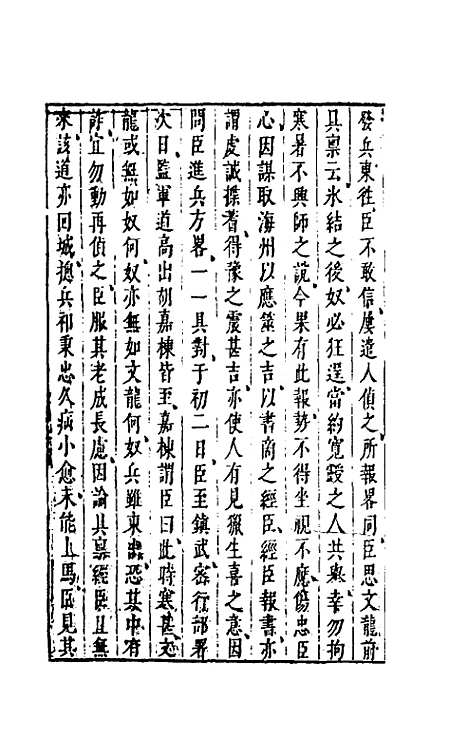 發兵東徃臣不敢信屢遣人偵之所報畧同臣思文龍前
具禀云氷結之後奴必狂逞當約寬靉之人共舉幸勿拘
寒暑不興師之說今果有此報勢不得坐視不應傷忠臣
心因謀取海州以應筮之吉以書商之經臣經臣報書亦
謂虔誠揲蓍得豫之震甚吉亦使人有見獵生喜之意因
問臣進兵方畧一一具對于初二日臣至鎮武密行部署
次日監軍道高出胡嘉棟皆至嘉棟謂臣曰此時寒甚文
龍或無如奴何奴亦無如文龍何奴兵雖東恐其中有
詐宜勿動再偵之臣服其老成長慮因諭具禀經臣且無
來該道亦回城摠兵祁秉忠久病小愈未能上馬臣見其